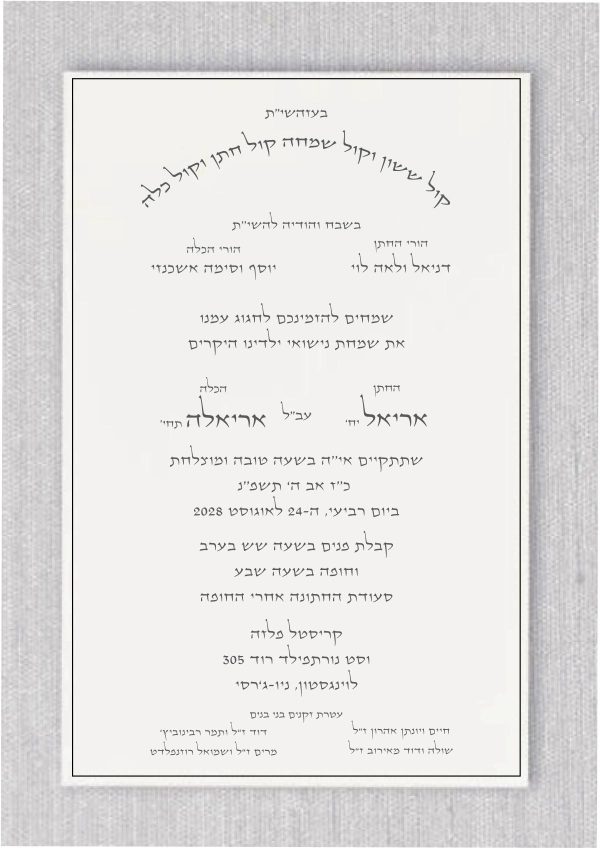 בעזהשי"ת
קול ששון וקול שמחה קול חתן וקול כלה
בשבח והודיה להשי"ת
הורי החתן
הורי הכלה
דניאל ולאה לוי
יוסף וסימה אשכנזי
שמחים להזמינכם לחגוג עמנו
את שמחת נישואי ילדינו היקרים
החתן
הכלה
אריאל יח' עב"ל אריאלה תחי'
שתתקיים אי"ה בשעה טובה ומוצלחת
כ"ז אב ה' תשפ"נ
ביום רביעי, ה-24 לאוגוסט 2028
קבלת פנים בשעה שש בערב
וחופה בשעה שבע
סעודת החתונה אחרי החופה
קריסטל פלזה
305 וסט נורתפילד רוד
לוינגסטון, ניו-ג'רסי
עטרת זקנים בני בנים
חיים ויונתן אהרון ז"ל
דוד ז"ל ותמר רבינוביץ'
שולה ודוד מאירוב ז"ל
מרים ז"ל ושמואל רוזנפלדט